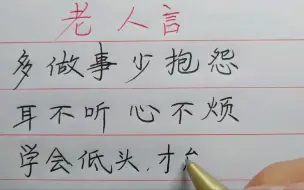 老人言
多做事少抱怨
耳不听心不烦
学会低头,才